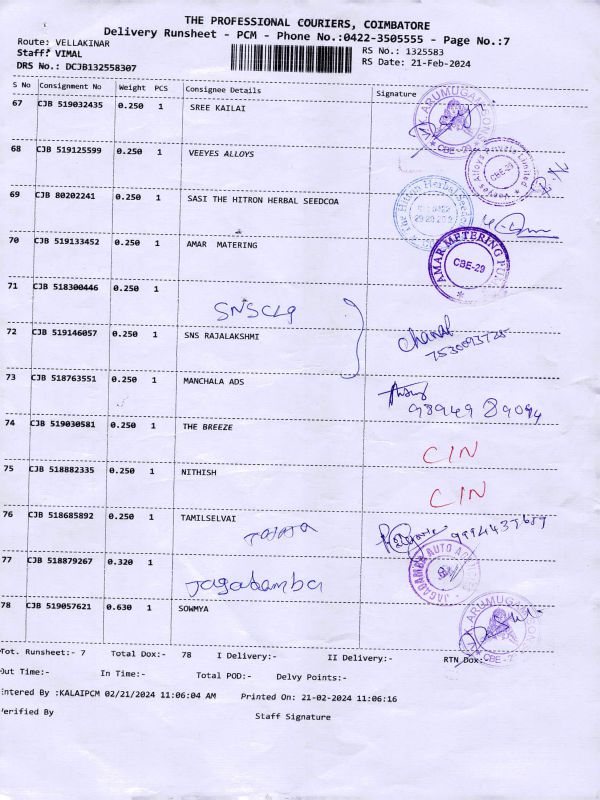 THE PROFESSIONAL COURIERS, COIMBATORE
Delivery Runsheet - PCM - Phone No.:0422-3505555 - Page No.:7
Route: VELLAKINAR
RS No.: 1325583
Staff: VIMAL
RS Date: 21-Feb-2024
DRS No.: DCJB132558307
S No Consignment No Weight PCS Consignee Details Signature
67 CJB 519032435 0.250 1 SREE KAILAI
ARUMUGA
CBE-
68 CJB 519125599 0.250 1 VEEYES ALLOYS
Veeyes Alloys Private Limited
CBE-29
69 CJB 80202241 0.250 1 SASI THE HITRON HERBAL SEEDCOA
The Hitron Herbal Seedco
70 CJB 519133452 0.250 1 AMAR MATERING
AMAR METERING
CBE-29
71 CJB 518300446 0.250 1
SNSCLg
72 CJB 519146057 0.250 1 SNS RAJALAKSHMI
7530093725
73 CJB 518763551 0.250 1 MANCHALA ADS
98949 89094
74 CJB 519030581 0.250 1 THE BREEZE
CIN
75 CJB 518882335 0.250 1 NITHISH
CIN
76 CJB 518685892 0.250 1 TAMILSELVAI
77 CJB 518879267 0.320 1
Jagadamba
JAGADAMBA AUTO
78 CJB 519057621 0.630 1 SOWMYA
ARUMUGA
CBE-
Tot. Runsheet:- 7 Total Dox:- 78 I Delivery:- II Delivery:- RTN Dox:-
Out Time:- In Time:- Total POD:- Delvy Points:-
Entered By :KALAIPCM 02/21/2024 11:06:04 AM Printed On: 21-02-2024 11:06:16
Verified By
Staff Signature